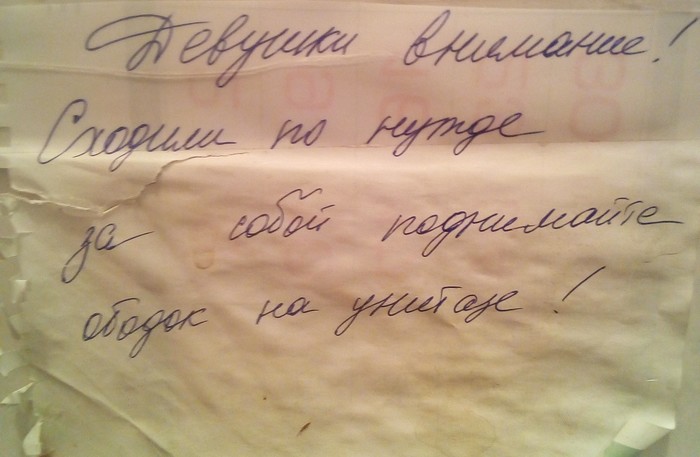 Девушки внимание!
Сходили по нужде
за собой поднимайте
ободок на унитазе!